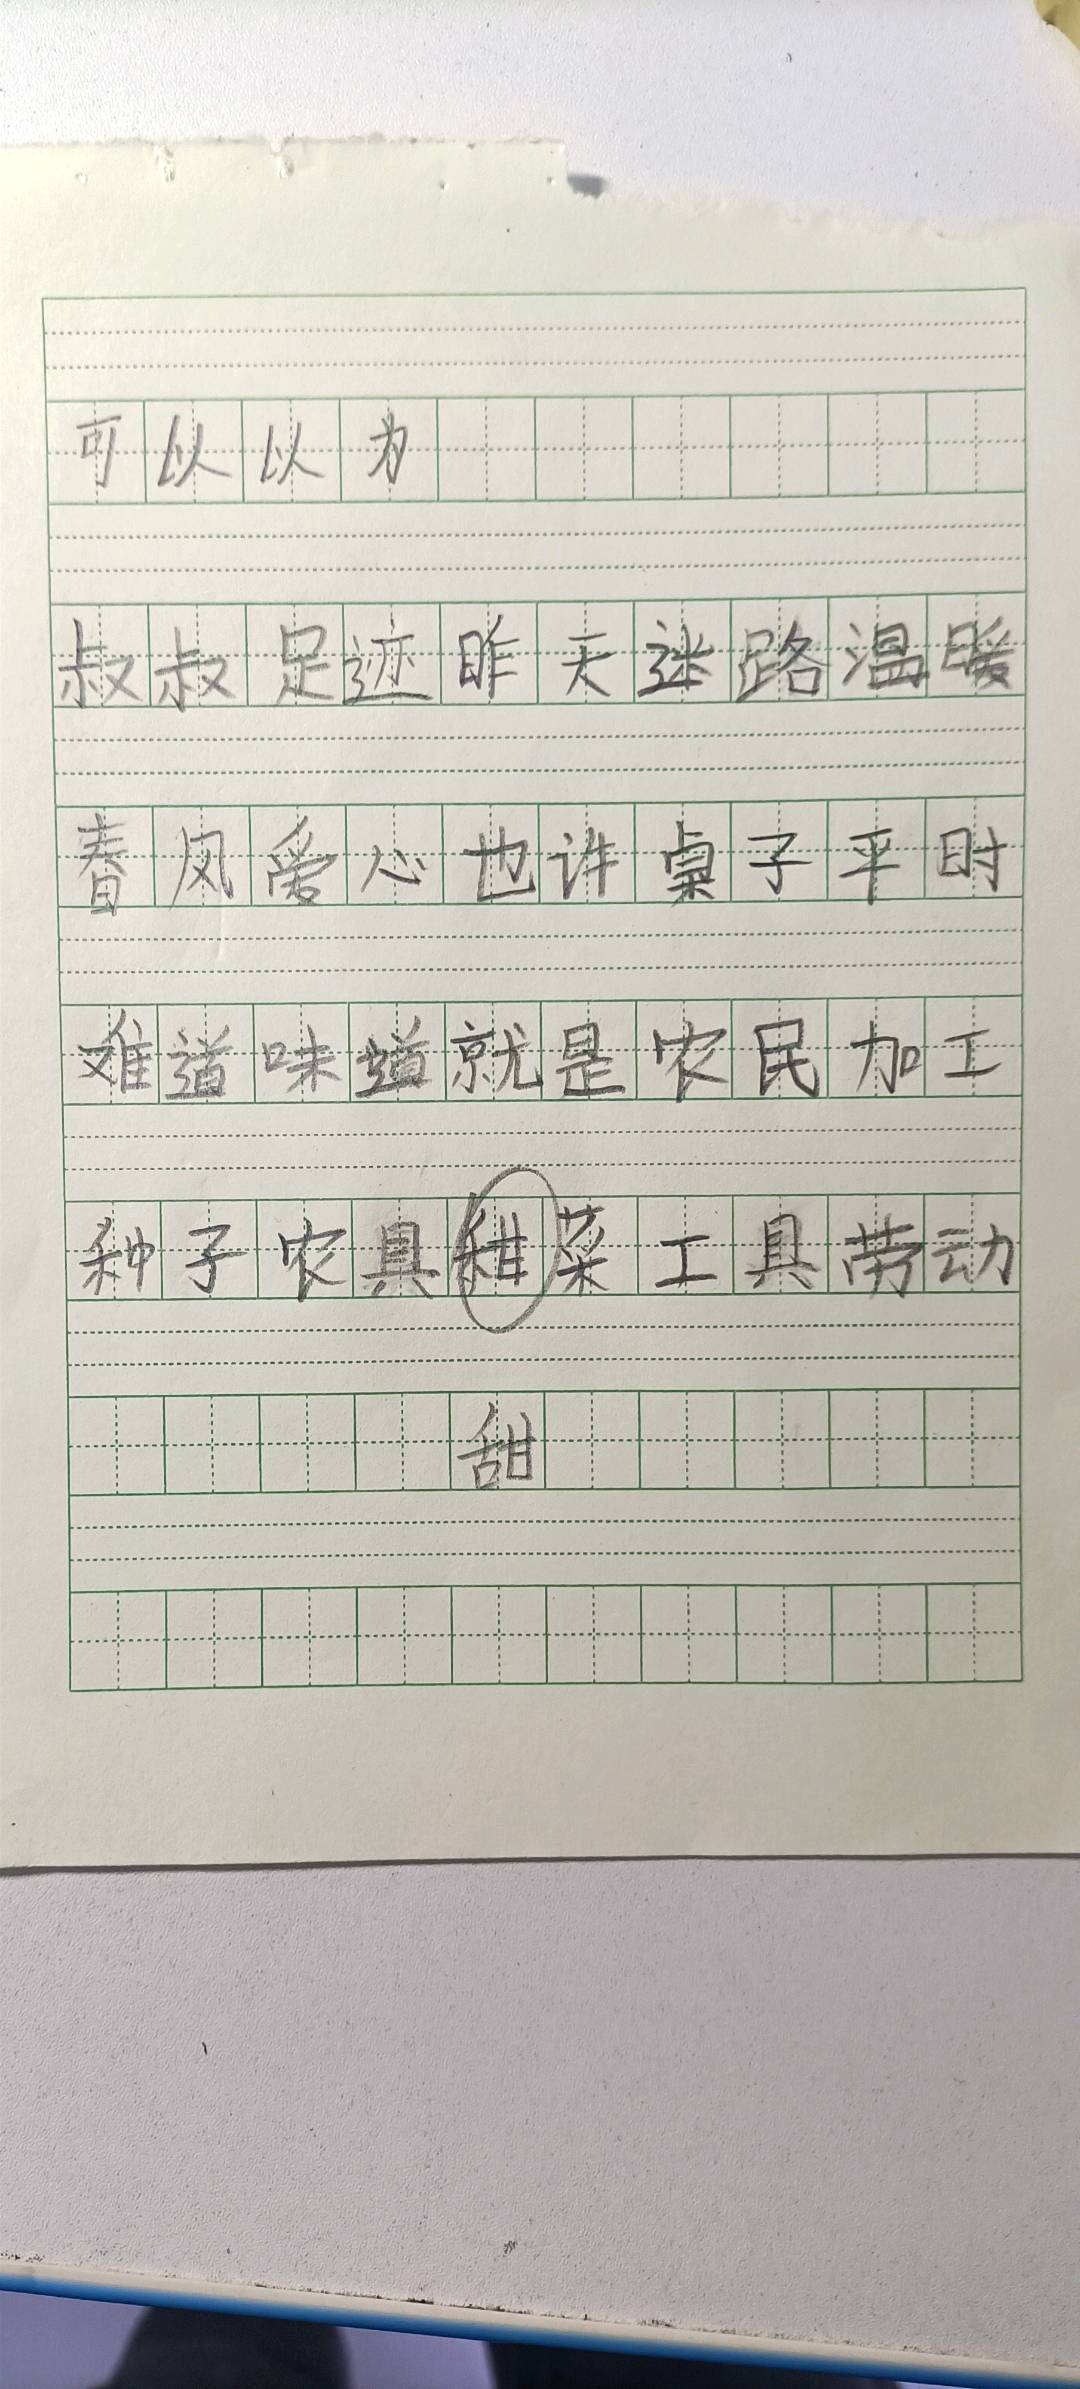 可以以为
叔叔足迹昨天迷路温暖
春风爱心也许桌子平时
难道味道就是农民加工
种子农具菜工具劳动
甜